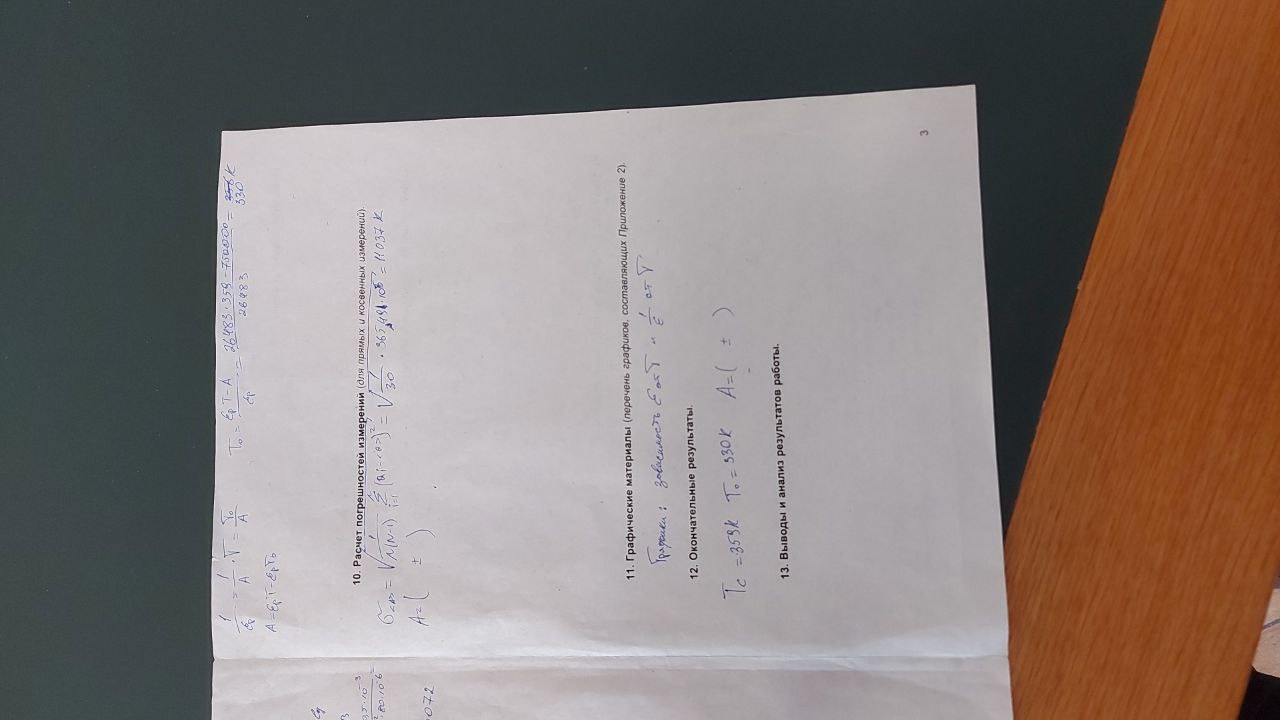 1/εр = 1/A · T = T₀/A
T₀ = (εр T - A)/εр = (26483·359 - 750000)/26483 = 330 K
A = εрT - εрT₀
10. Расчет погрешностей измерений (для прямых и косвенных измерений).
σ<A> = √(1/N(N-1) Σ i=1 N (ai - <a>)²) = √(1/30 · 365,491·10⁵) = 11037 K
A = ( ± )
072
11. Графические материалы (перечень графиков, составляющих Приложение 2).
Графики: зависимость ε от T и 1/ε от T
12. Окончательные результаты.
Tc = 359K T₀ = 330K A = ( ± )
13. Выводы и анализ результатов работы.
3